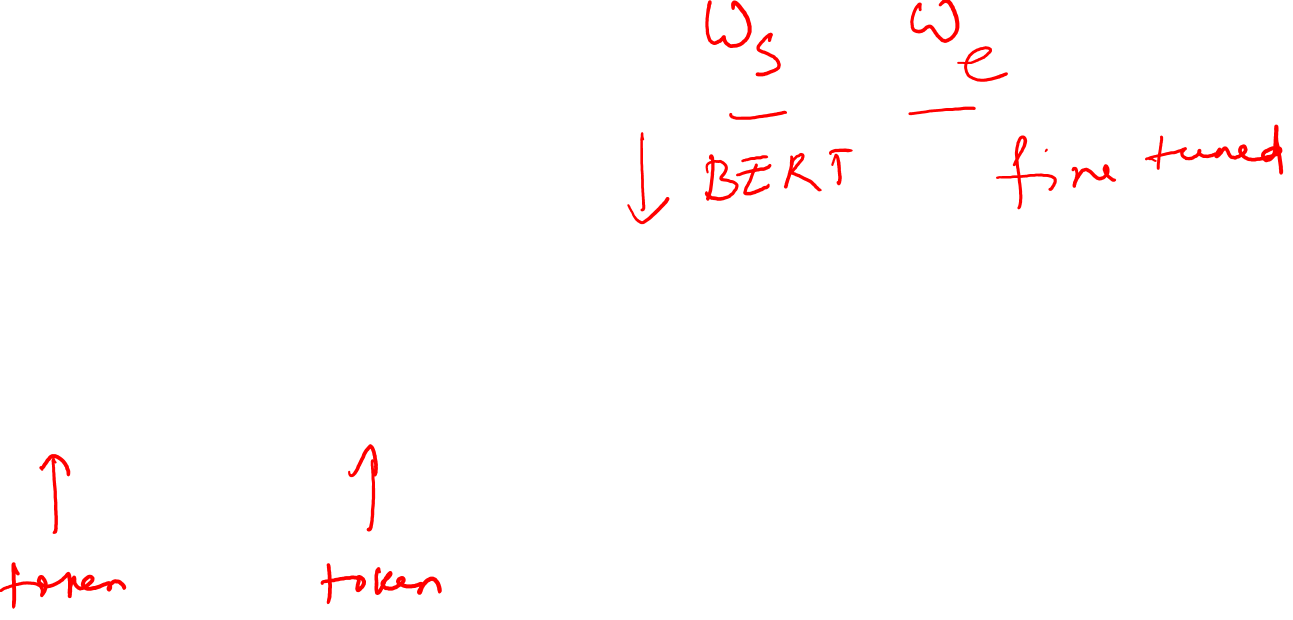 ω_s ω_e
BERT fine tuned
token token